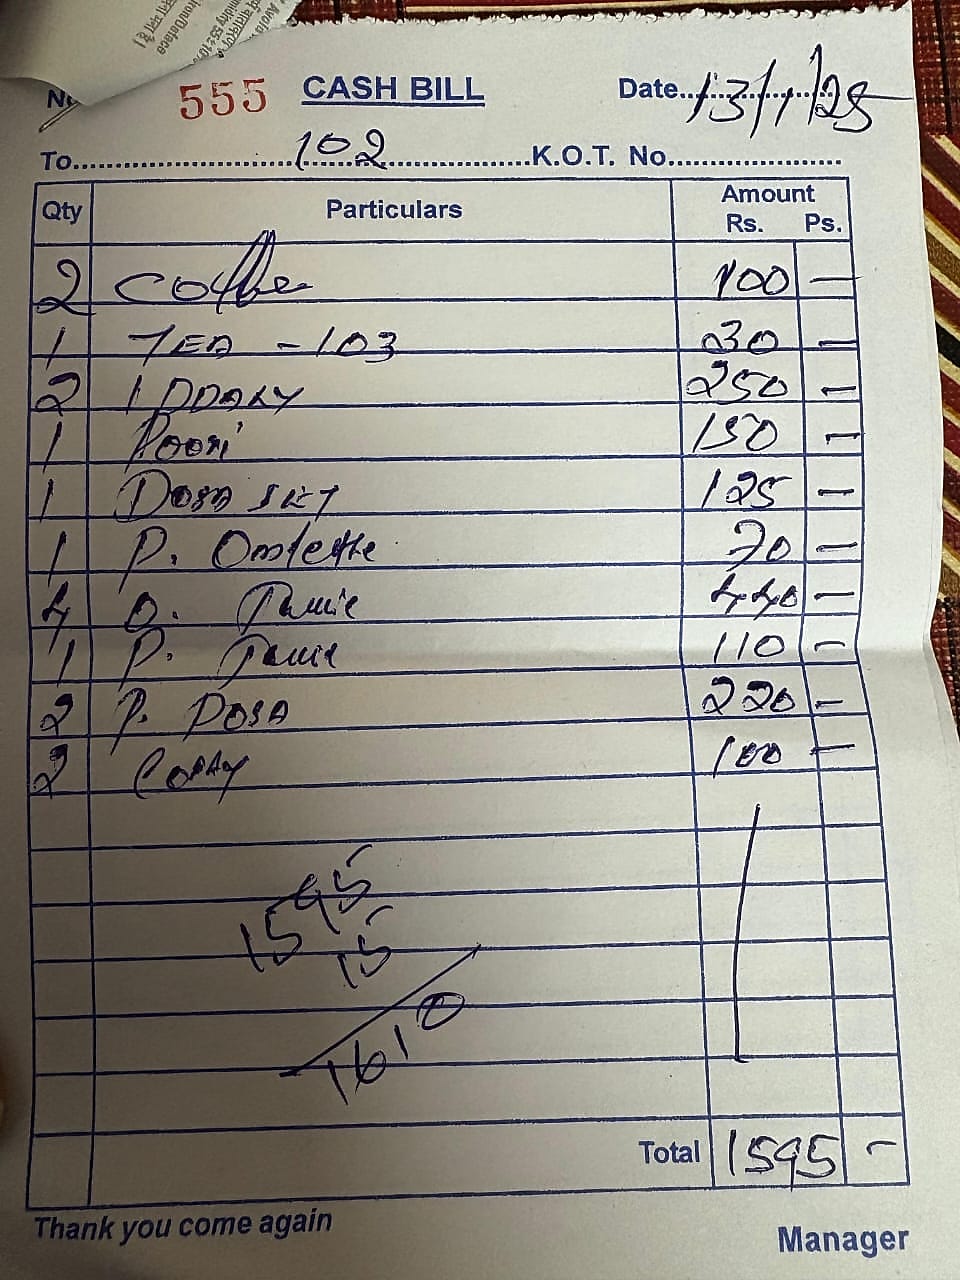 555 CASH BILL Date 13/1/25
To 102 K.O.T. No.
Qty Particulars Amount
Rs. Ps.
2 Coffee 100 -
1 TEA - 103 30 -
2 IDDALY 250 -
1 Poori 150 -
1 DOSA SET 125 -
1 P. Omlette 70 -
4 O. 440 -
1 P. 110 -
2 P. DOSA 220 -
2 100 -
1595
15
1610
Total 1595 -
Thank you come again
Manager